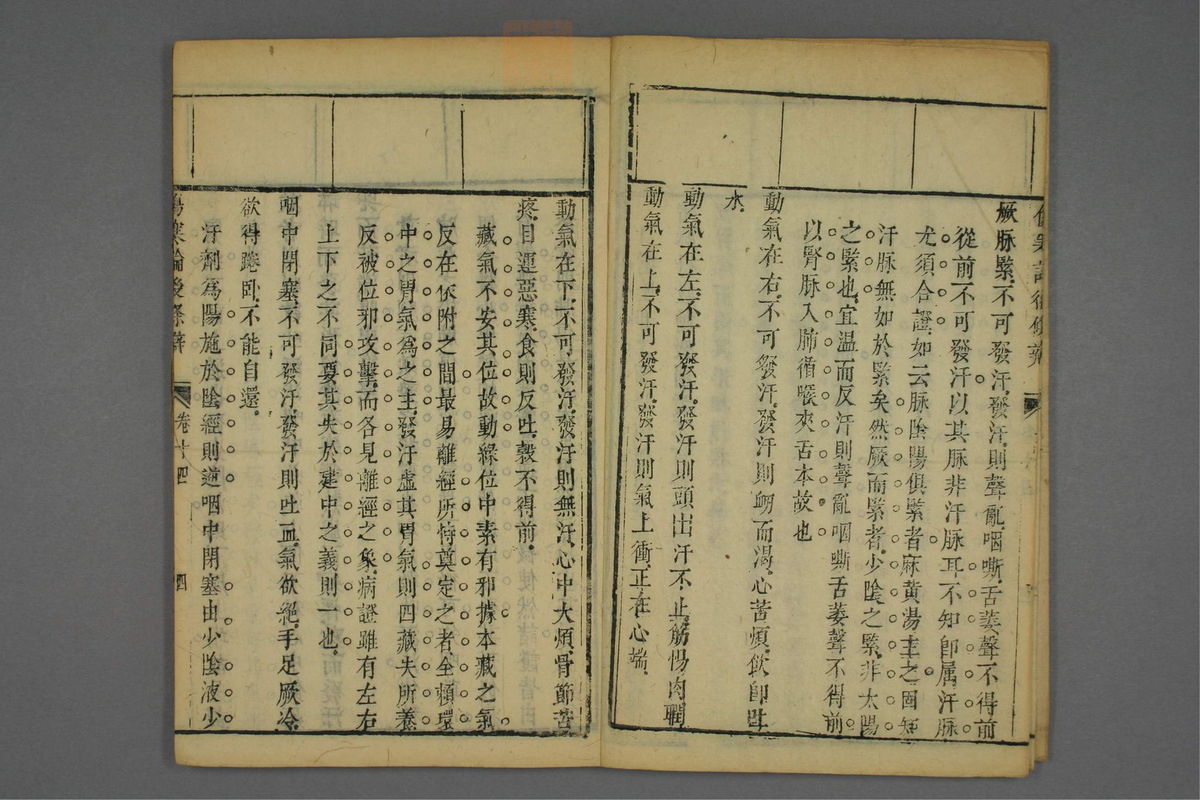 厥脉緊不可發汗發汗則聲亂咽嘶舌萎聲不得前
從前不可發汗以其脉非汗脉耳不知卽属汗脉
尤須合證如云脉陰陽俱緊者麻黄湯主之固知
汗脉無如於緊矣然厥而緊者少陰之緊非太陽
之緊也宜温而反汗則聲亂咽嘶舌萎聲不得前
以腎脉入肺循喉夾舌本故也
動氣在右不可發汗發汗則衂而渴心苦煩飲卽吐
水
動氣在左不可發汗發汗則頭出汗不止筋惕肉瞤
動氣在上不可發汗發汗則氣上衝正在心端
動氣在下不可發汗發汗則無汗心中大煩骨節苦
疼目運惡寒食則反吐穀不得前
藏氣不安其位故動緣位中素有邪據本藏之氣
反在依附之間最易離經所恃奠定之者全頼環
中之胃氣爲之主發汗虚其胃氣則四藏失所養
反被位邪攻擊而各見離經之象病證雖有左右
上下之不同要其失於建中之義則一也
咽中閉塞不可發汗發汗則吐血氣欲絕手足厥冷
欲得踡卧不能自還
汗劑爲陽施於陰經則逆咽中閉塞由少陰液少
傷寒論後條辨 卷十四 四